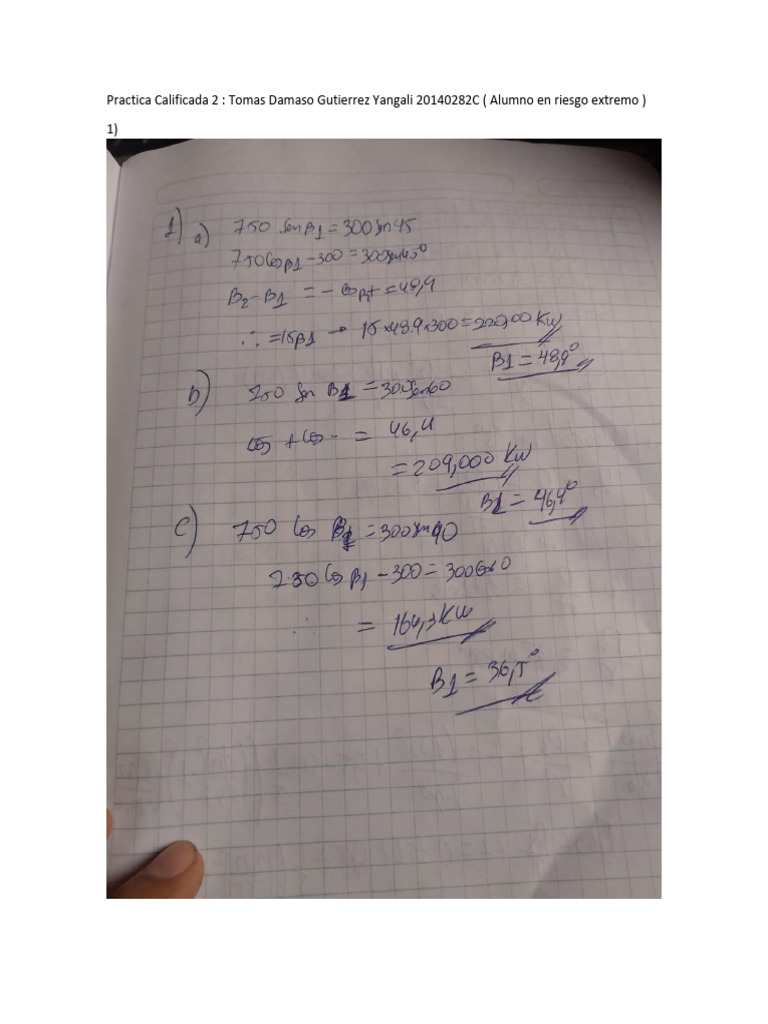 Practica Calificada 2 : Tomas Damaso Gutierrez Yangali 20140282C ( Alumno en riesgo extremo )
1)
1) a) 750 sen β1 = 300 sen 45
750 Cos β1 - 300 = 300 sen 45°
B2 - B1 = - = 48,9
∴ = 15β1 → 15 x 48.9 x 300 = 220,00 Kw
B1 = 48,9°
b) 750 Sen B1 = 300 sen 60
= 46,4
= 209,000 Kw
B1 = 46,4°
c) 750 Cos B1 = 300 sen 90
750 Cos β1 - 300 = 300
∴ = 164,3 Kw
B1 = 36,5°